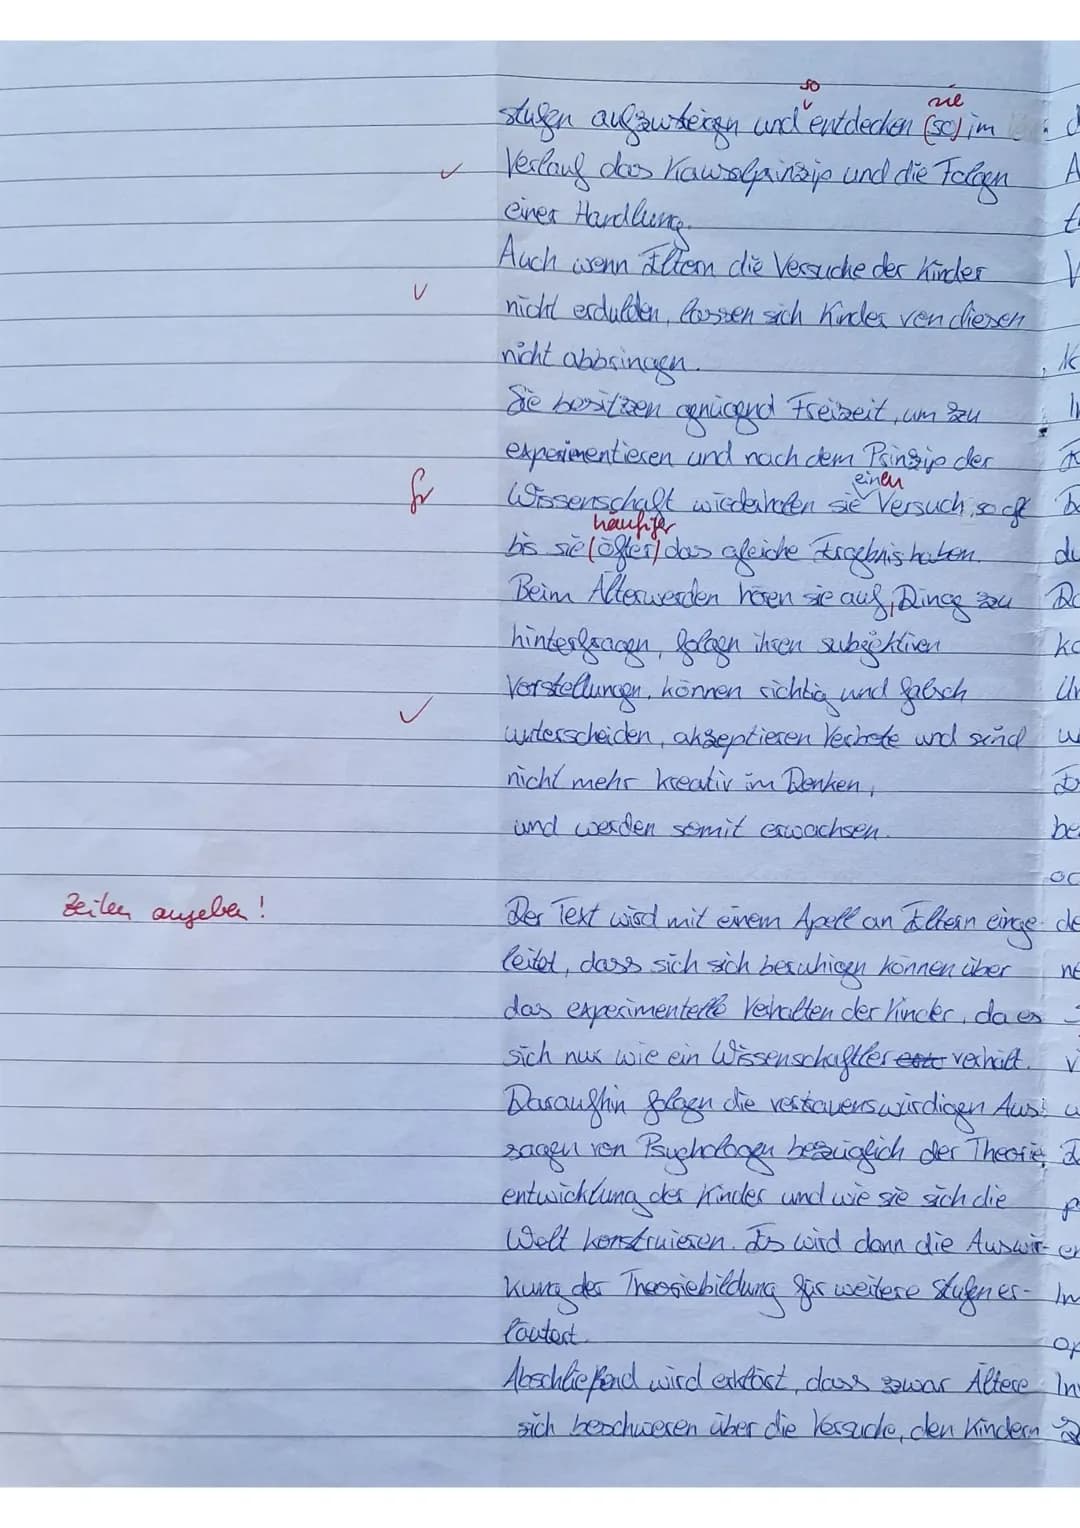 so sie
stufen aufzusteigen und entdecken (so) im
✓ Verlauf das Kausalprinzip und die Folgen
einer Handlung.
Auch wenn Eltern die Versuche der Kinder
✓ nicht erdulden, lassen sich Kinder von diesen
nicht abbringen.
Sie besitzen genügend Freizeit, um zu
experimentieren und nach dem Prinzip der
einen
Wissenschaft wiederholen sie Versuch, so oft
häufiger
bis sie (öfter) das gleiche Ergebnis haben.
Beim Älterwerden hören sie auf, Dinge zu
hinterfragen, folgen ihren subjektiven
Vorstellungen, können richtig und falsch
✓ unterscheiden, akzeptieren Verbote und sind
nicht mehr kreativ im Denken,
und werden somit erwachsen.
Zeilen angeben! Der Text wird mit einem Apell an Eltern einge-
leitet, dass sich sich beruhigen können über
das experimentelle Verhalten der Kinder, da es
sich nur wie ein Wissenschaftler verhält.
Daraufhin folgen die vertrauenswürdigen Aus-
sagen von Psychologen bezüglich der Theorie
entwicklung der Kinder und wie sie sich die
Welt konstruieren. Es wird dann die Auswir-
kung der Theoriebildung für weitere Stufen er-
läutert.
Abschließend wird erklärt, dass zwar Ältere
sich beschweren über die Versuche, den Kindern